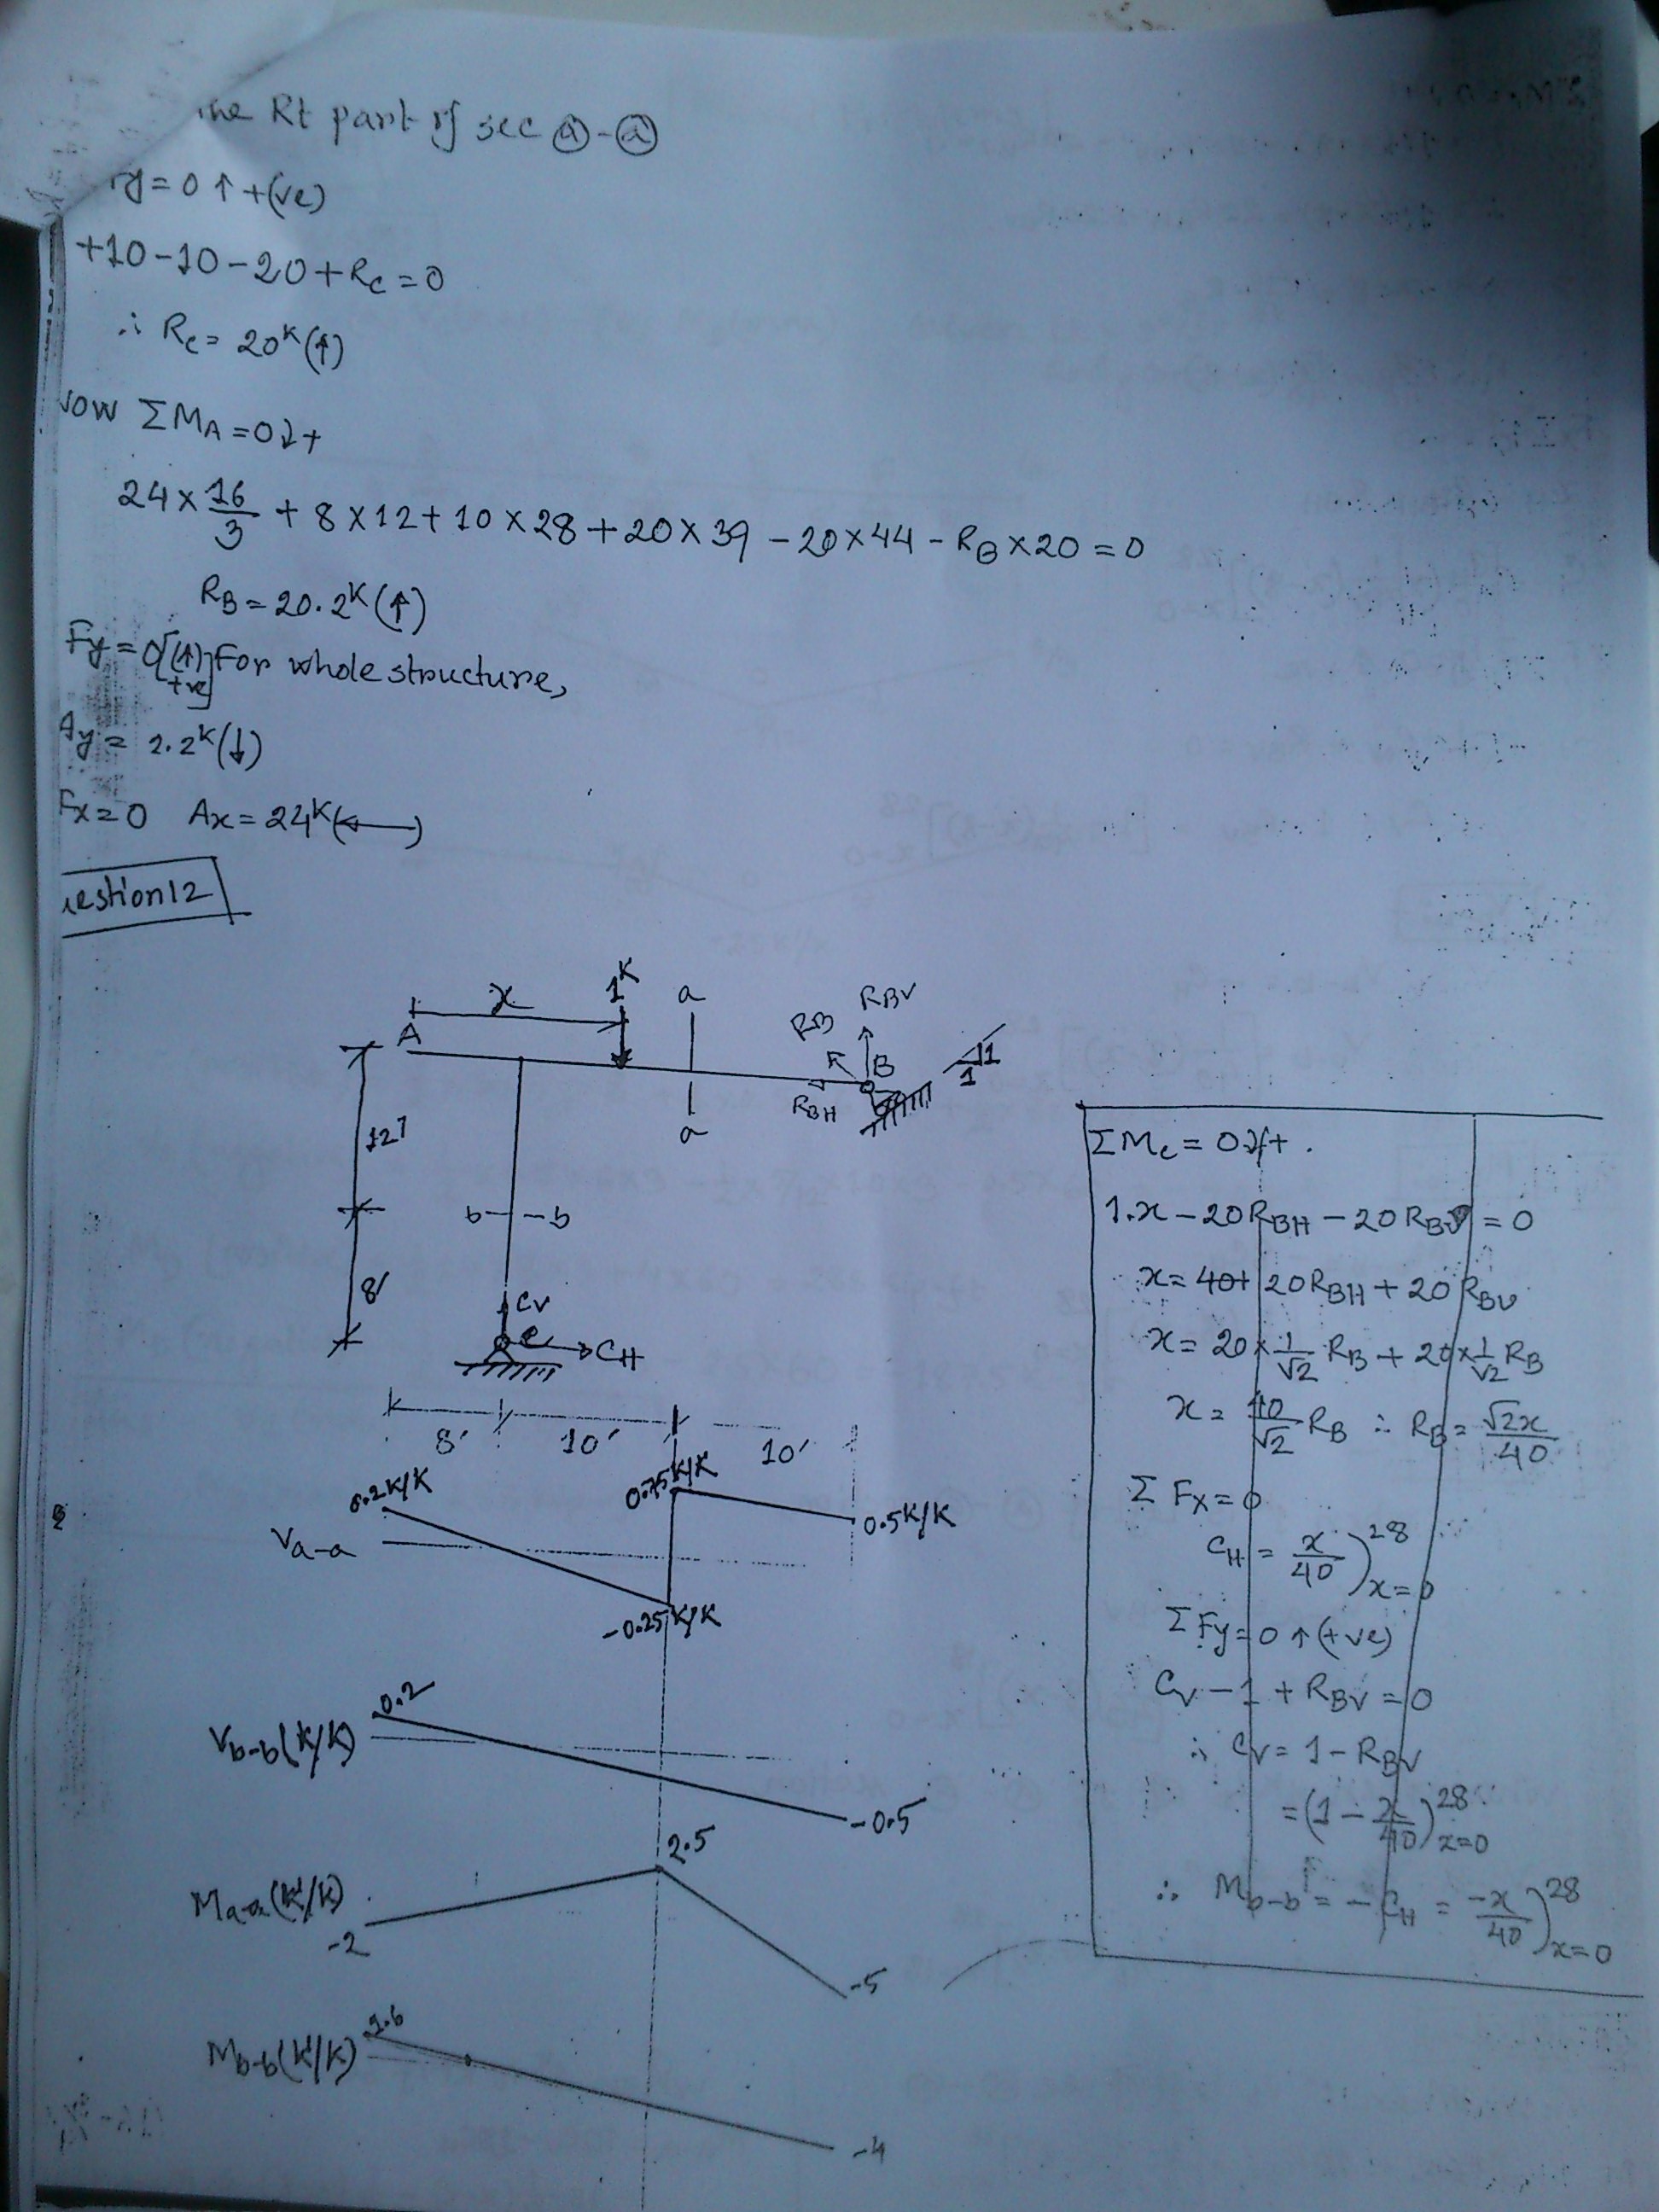 the Rt part of sec ⓐ-ⓐ
Fy = 0 ↑ +(ve)
+10-10-20+Rc = 0
∴ Rc = 20ᴷ(↑)
Now ΣMA = 0 ↴+
24 × 16/3 + 8×12 + 10×28 + 20×39 - 20×44 - RB×20 = 0
RB = 20.2ᴷ(↑)
Fy = 0[(↑)+ve] For whole structure,
Ay = 2.2ᴷ(↓)
Fx = 0 Ax = 24ᴷ(←)
uestion 12
x 1ᴷ a RBV
A RB B 1
1
RBH
a
12'
b- -b
8'
CV
C CH
8' 10' 10'
0.2K/K 0.75K/K 0.5K/K
Va-a
-0.25K/K
0.2
Vb-b(K/K)
-0.5
2.5
Ma-a(K'/K)
-2
-5
1.6
Mb-b(K'/K)
-4
ΣMc = 0 +.
1.x - 20RBH - 20RBV = 0
x = 40+ 20RBH + 20RBV
x = 20 × 1/√2 RB + 20 × 1/√2 RB
x = 40/√2 RB ∴ RB = √2x/40
ΣFx = 0
CH = x/40 )²⁸ x=0
ΣFy = 0 ↑(+ve)
CV - 1 + RBV = 0
∴ CV = 1 - RBV
= (1 - x/40)²⁸ x=0
∴ Mb-b = - CH = -x/40 )²⁸ x=0